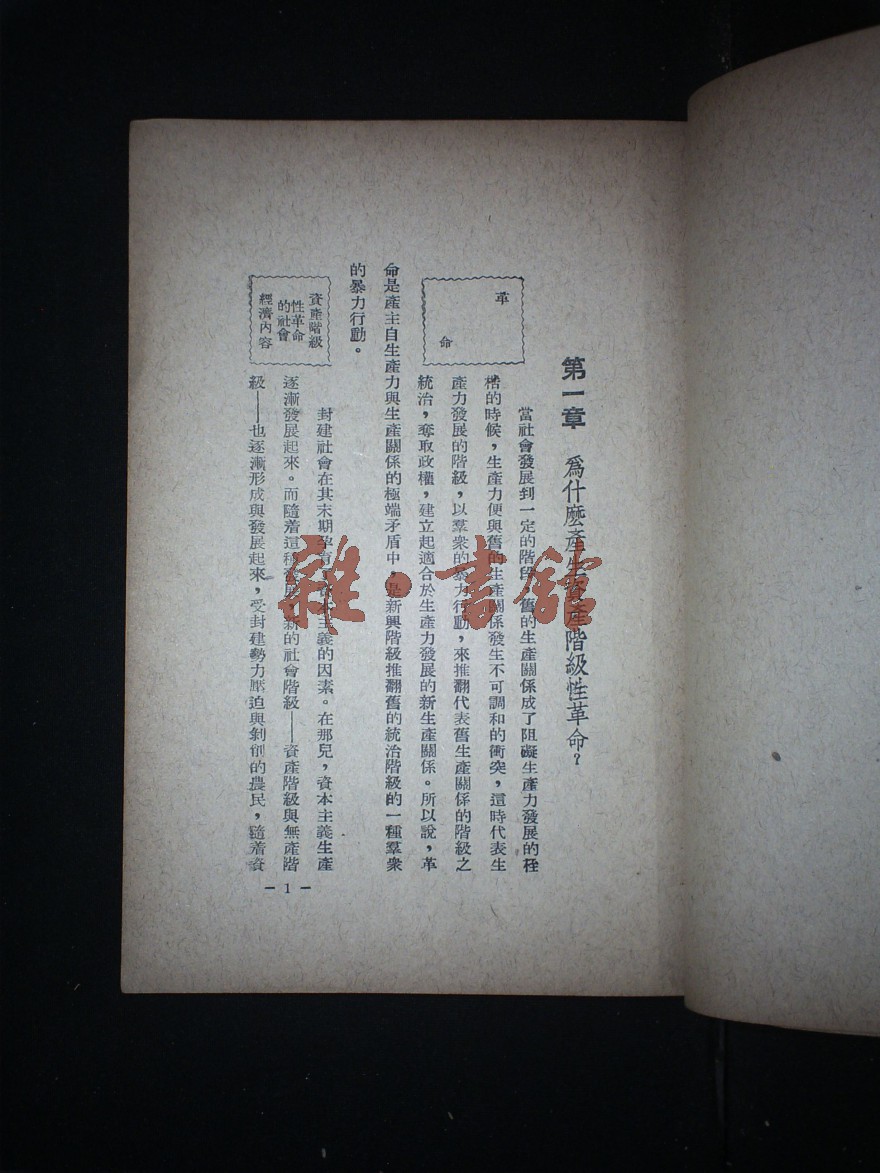 第一章　爲什麼產生資產階級性革命？
革
命
當社會發展到一定的階段，舊的生產關係成了阻礙生產力發展的桎
梏的時候，生產力便與舊的生產關係發生不可調和的衝突，這時代表生
產力發展的階級，以羣衆的暴力行動，來推翻代表舊生產關係的階級之
統治，奪取政權，建立起適合於生產力發展的新生產關係。所以說，革
命是產主自生產力與生產關係的極端矛盾中，是新興階級推翻舊的統治階級的一種羣衆
的暴力行動。
資產階級
性革命
的社會
經濟內容
封建社會在其末期孕育主義的因素。在那兒，資本主義生產
逐漸發展起來。而隨着這種發展，新的社會階級——資產階級與無產階
級——也逐漸形成與發展起來，受封建勢力壓迫與剝削的農民，隨着資
— 1 —
雜·書館